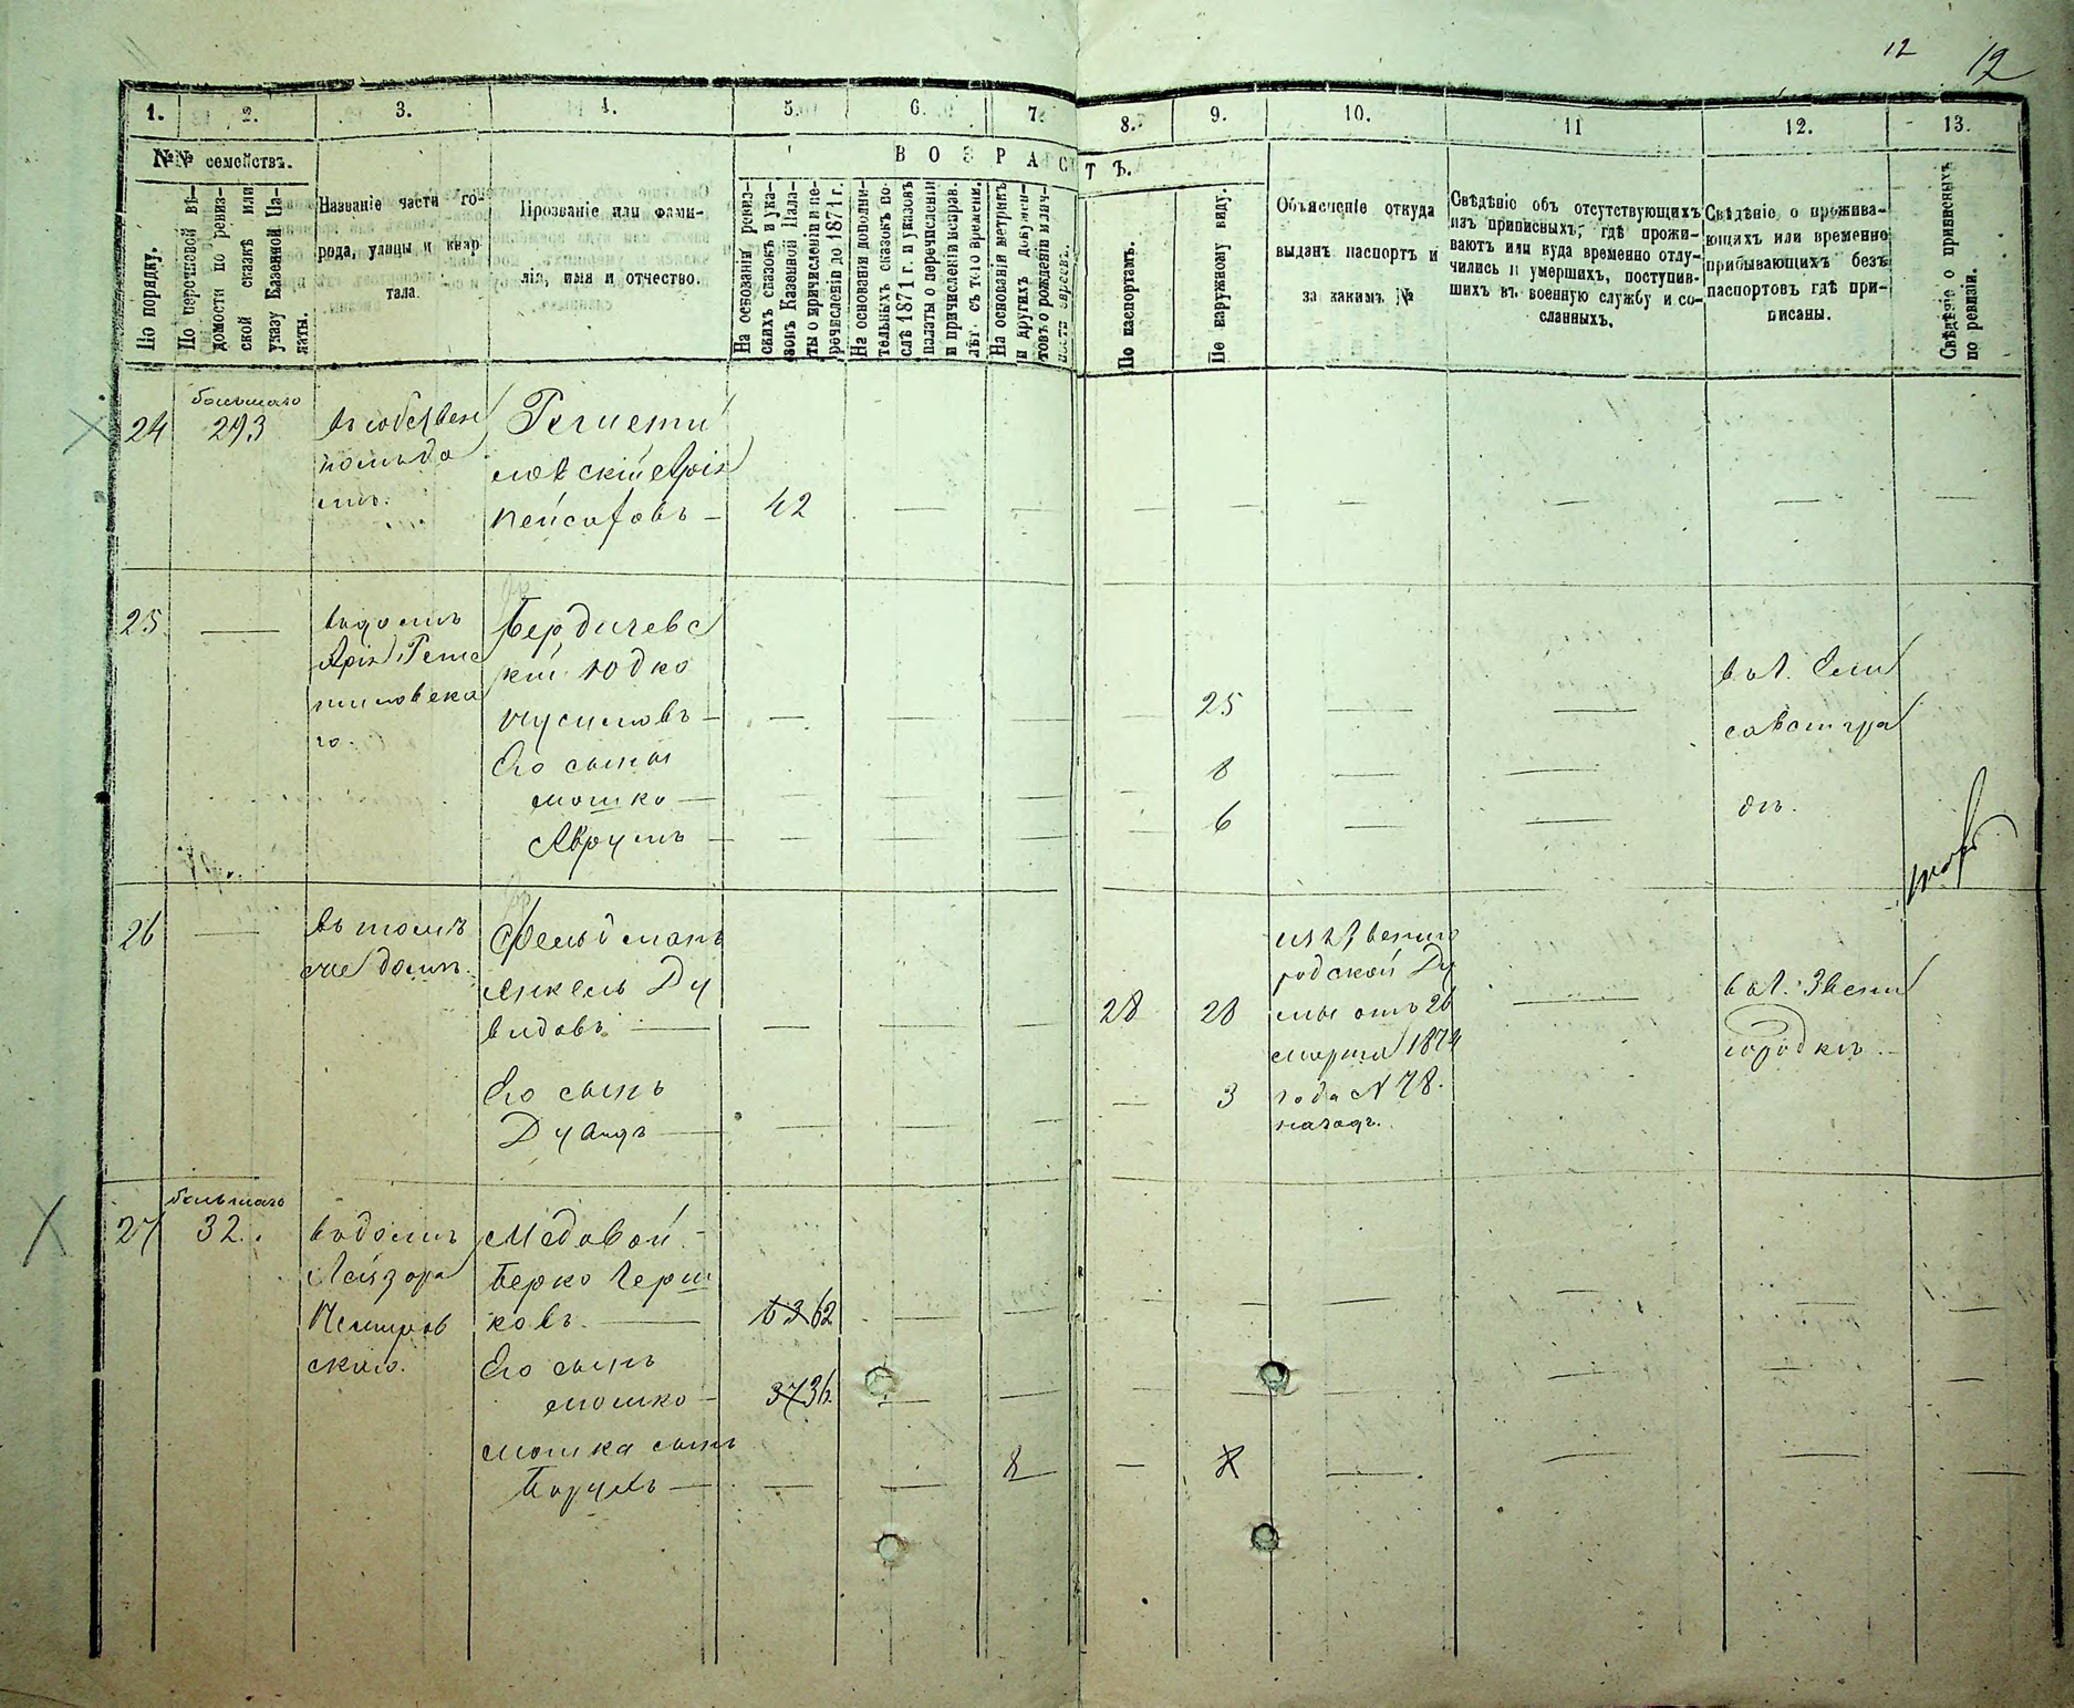 12 12
1. 2. 3. 4. 5. 6. 7. 8. 9. 10. 11 12. 13.
№№ семействъ.
ВОЗРАСТЪ.
По порядку.
По перечневой вѣ-
домости по ревиз-
ской сказкѣ или
указу Казенной Па-
латы.
Названіе части го-
рода, улицы и квар
тала.
Прозваніе или фами-
лія, имя и отчество.
На основаніи ревиз-
скихъ сказокъ и ука-
зовъ Казенной Пала-
ты о причисленіи и пе-
речисленіи до 1871 г.
На основаніи дополни-
тельныхъ сказокъ по-
слѣ 1871 г. и указовъ
палаты о перечисленіи
и причисленіи исправ.
лѣт. съ того времени.
На основаніи метрикъ
и другихъ докумен-
товъ о рожденіи и лич-
ности евреевъ.
По паспортамъ.
По наружному виду.
Объясненіе откуда
выданъ паспортъ и
за какимъ №
Свѣдѣніе объ отсутствующихъ
изъ приписныхъ, гдѣ прожи-
ваютъ или куда временно отлу-
чились и умершихъ, поступив-
шихъ въ военную службу и со-
сланныхъ.
Свѣдѣніе о прожива-
ющихъ или временно
прибывающихъ безъ
паспортовъ гдѣ при-
писаны.
Свѣдѣніе о приписныхъ
по ревизіи.
24
большаго
293
въ собствен
номъ до
мѣ.
ловскій Арія
Пейсаховъ —
42
25
въ домѣ
Арія
го.
Бердичевс
кій Юдко
Нусимовъ —
25
Его сыны
Мошко —
8
Аврумъ —
6
въ г. Ели
саветгра
дѣ.
26
въ томъ
же домѣ.
Фельдманъ
Янкель Ду
видовъ —
28 28
Его сынъ
Дувидъ —
3
изъ Звениго
родской Ду
мы отъ 26
марта 1874
года № 78.
въ г. Звени
городкѣ.
27
большаго
32.
въ домѣ
Лейзора
Немиров
скаго.
Медовой
Берко Герш
ковъ. —
62
Его сынъ
Мошко —
37 36
Мошка сынъ
Борухъ —
8 8